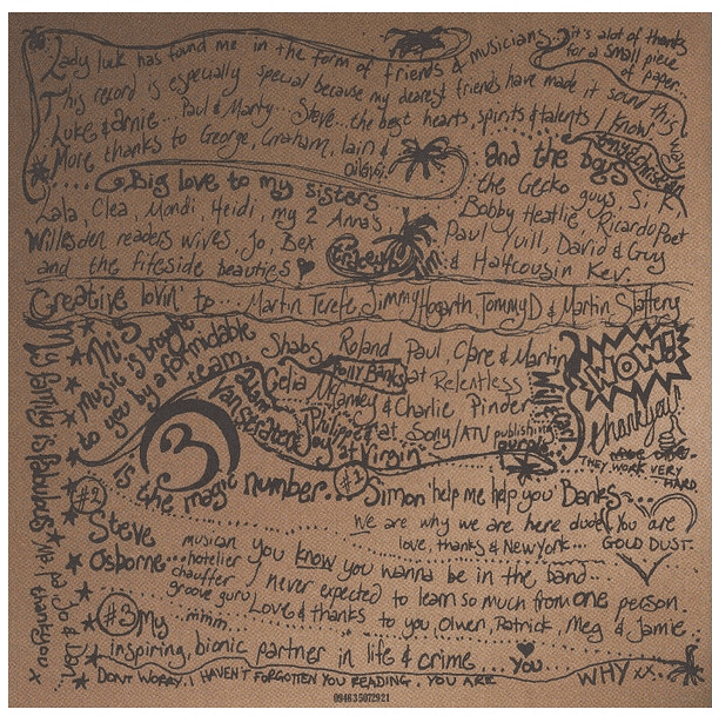 Lady luck has found me in the form of friends & musicians...
it's alot of thanks
for a small piece
of paper...
This record is especially special because my dearest friends have made it sound this way
Luke & arnie... Paul & Marty... Steve... the best hearts, spirits & talents I know
More thanks to George, Graham, Iain &
and the boys
Big love to my sisters
the Gecko guys, Si K,
Lala, Clea, Mandi, Heidi, my 2 Anna's,
Bobby Heatlie, Ricardo Poet
Willesden readers wives, Jo, Bex
Paul Yuill, David & Guy
and the fireside beauties
& Halfcousin Kev.
Creative lovin' to... Martin Terefe, Jimmy Hogarth, Tommy D & Martin Slattery
My family is fabulous
Jo & Don
I thankyou x
This
music is brought
to you by a formidable
team.
Shabs, Roland Paul, Clare & Martin
Polly Banks at Relentless
Celia McCamley & Charlie Pinder
at Sony/ATV publishing
at Virgin
WOW!
thankyou
THEY WORK VERY
HARD
3
is the magic number.
#1 Simon 'help me help you' Banks...
We are why we are here dude! You are
love, thanks & New York... GOLD DUST.
#2
Steve
Osborne...
musician
hotelier
chauffer
groove guru
you know you wanna be in the band...
I never expected to learn so much from one person.
mmm...
Love & thanks to you, Olwen, Patrick, Meg & Jamie.
#3 My
inspiring, bionic partner in life & crime ... you
WHY xx.
DONT WORRY, I HAVEN'T FORGOTTEN YOU READING, YOU ARE
094635072921